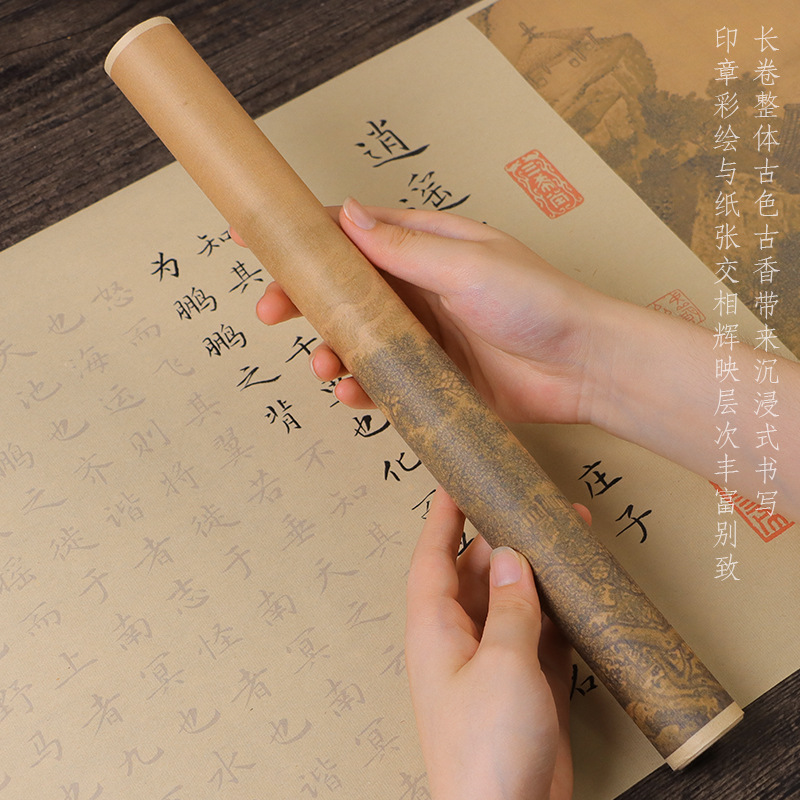 长卷整体古色古香带来沉浸式书写
印章彩绘与纸张交相辉映层次丰富别致
逍遥
庄子
知其
千里也化
为鹏鹏之背不知其
怒而飞其翼若垂天之云
也海运则将徙于南冥南冥
天池也齐谐者志怪者也谐
鹏之徙于南冥也水
摇而上者九
野马也